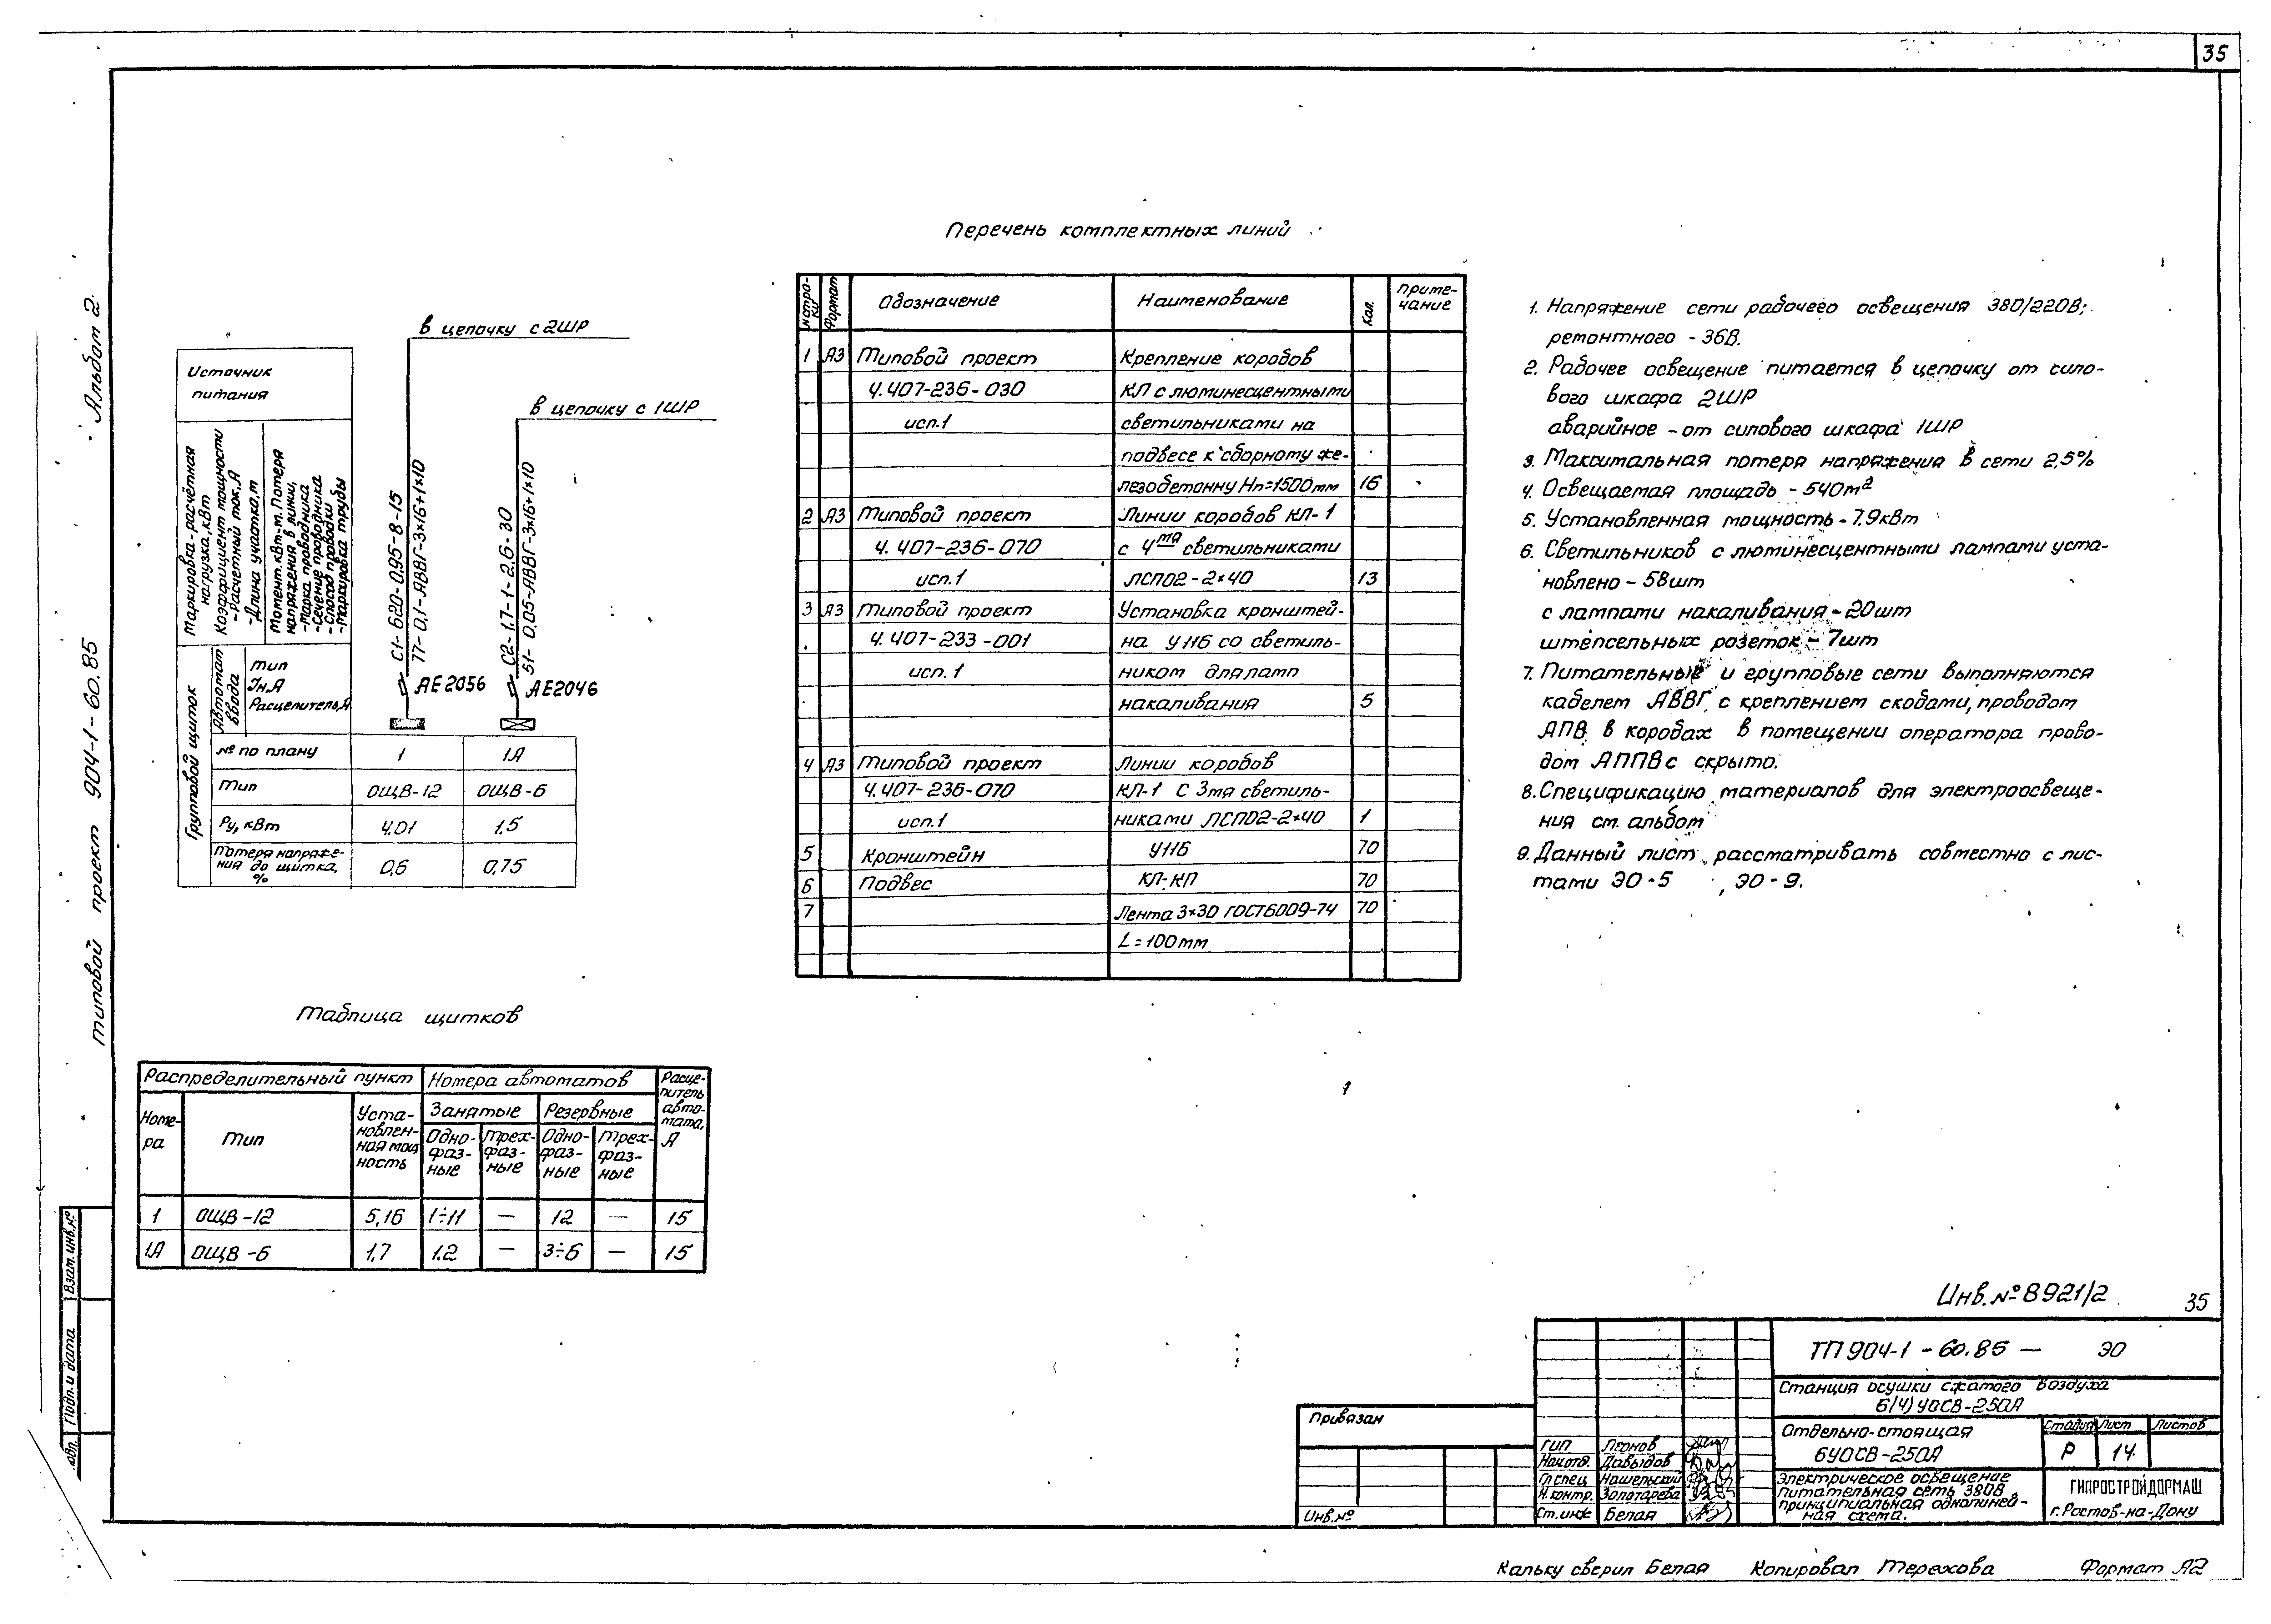 35
Альбом 2
типовой проект 904-1-60.85
Взам. инв. №
Подп. и дата
в цепочку с 2ШР
в цепочку с 1ШР
Источник
питания
Маркировка-расчётная
нагрузка, кВт
Коэффициент мощности
-Расчетный ток, А
-Длина участка, м
Момент, кВт-м. Потеря
напряжения в линии,
-Марка проводника
-Сечение проводника
-Способ проводки
-Маркировка трубы
С1-6.20-0,95-8-15
77-0,1-АВВГ-3×16+1×10
С2-1.7-1-2.6-30
51-0,05-АВВГ-3×16+1×10
АЕ2056
АЕ2046
Групповой щиток
Автомат
ввода
Тип
Iн, А
Расцепитель, А
№ по плану 1 1А
Тип ОЩВ-12 ОЩВ-6
Ру, кВт 4.01 1.5
Потеря напряже-
ния до щитка, 0,6 0,75
%
Перечень комплектных линий
Формат Обозначение Наименование Кол. Приме-
чание
1 А3 Типовой проект Крепление коробов
4.407-236-030 КЛ с люминесцентными
исп.1 светильниками на
подвесе к сборному же-
лезобетонну Нп=1500мм 16
2 А3 Типовой проект Линии коробов КЛ-1
4.407-236-070 с 4мя светильниками
исп.1 ЛСП02-2×40 13
3 А3 Типовой проект Установка кронштей-
4.407-233-001 на У116 со светиль-
исп.1 ником для ламп
накаливания 5
4 А3 Типовой проект Линии коробов
4.407-236-070 КЛ-1 с 3мя светиль-
исп.1 никами ЛСП02-2×40 1
5 Кронштейн У116 70
6 Подвес КЛ-КП 70
7 Лента 3×30 ГОСТ6009-74 70
L=100мм
1. Напряжение сети рабочего освещения 380/220В;
ремонтного - 36В.
2. Рабочее освещение питается в цепочку от сило-
вого шкафа 2ШР
аварийное - от силового шкафа 1ШР
3. Максимальная потеря напряжения в сети 2,5%
4. Освещаемая площадь - 540м²
5. Установленная мощность - 7.9кВт
6. Светильников с люминесцентными лампами уста-
новлено - 58шт
с лампами накаливания - 20шт
штепсельных розеток - 7шт
7. Питательные и групповые сети выполняются
кабелем АВВГ, с креплением скобами, проводом
АПВ в коробах в помещении оператора прово-
дом АППВс скрыто.
8. Спецификацию материалов для электроосвеще-
ния см. альбом
9. Данный лист рассматривать совместно с лис-
тами ЭО-5 , ЭО-9.
Таблица щитков
Распределительный пункт Номера автоматов Расце-
питель
авто-
мата,
А
Номе-
ра
Тип
Уста-
новлен-
ная мощ
ность
Занятые Резервные
Одно-
фаз-
ные
Трех-
фаз-
ные
Одно-
фаз-
ные
Трех-
фаз-
ные
1 ОЩВ-12 5,16 1÷11 — 12 — 15
1А ОЩВ-6 1,7 1.2 — 3÷6 — 15
Инв. № 8921/2
35
ТП 904-1-60.85 — ЭО
Станция осушки сжатого воздуха
6(4)УОСВ-250А
Отдельно-стоящая
6УОСВ-250А
Стадия Лист Листов
Р 14
Электрическое освещение
питательная сеть 380В
принципиальная однолиней-
ная схема.
ГИПРОСТРОЙДОРМАШ
г. Ростов-на-Дону
Привязан
Инв. №
ГИП Леонов
Нач.отд. Давыдов
Гл.спец Нашельский
Н.контр. Золотарева
Ст.инж Белая
Кальку сверил Белая Копировал Терехова Формат А2